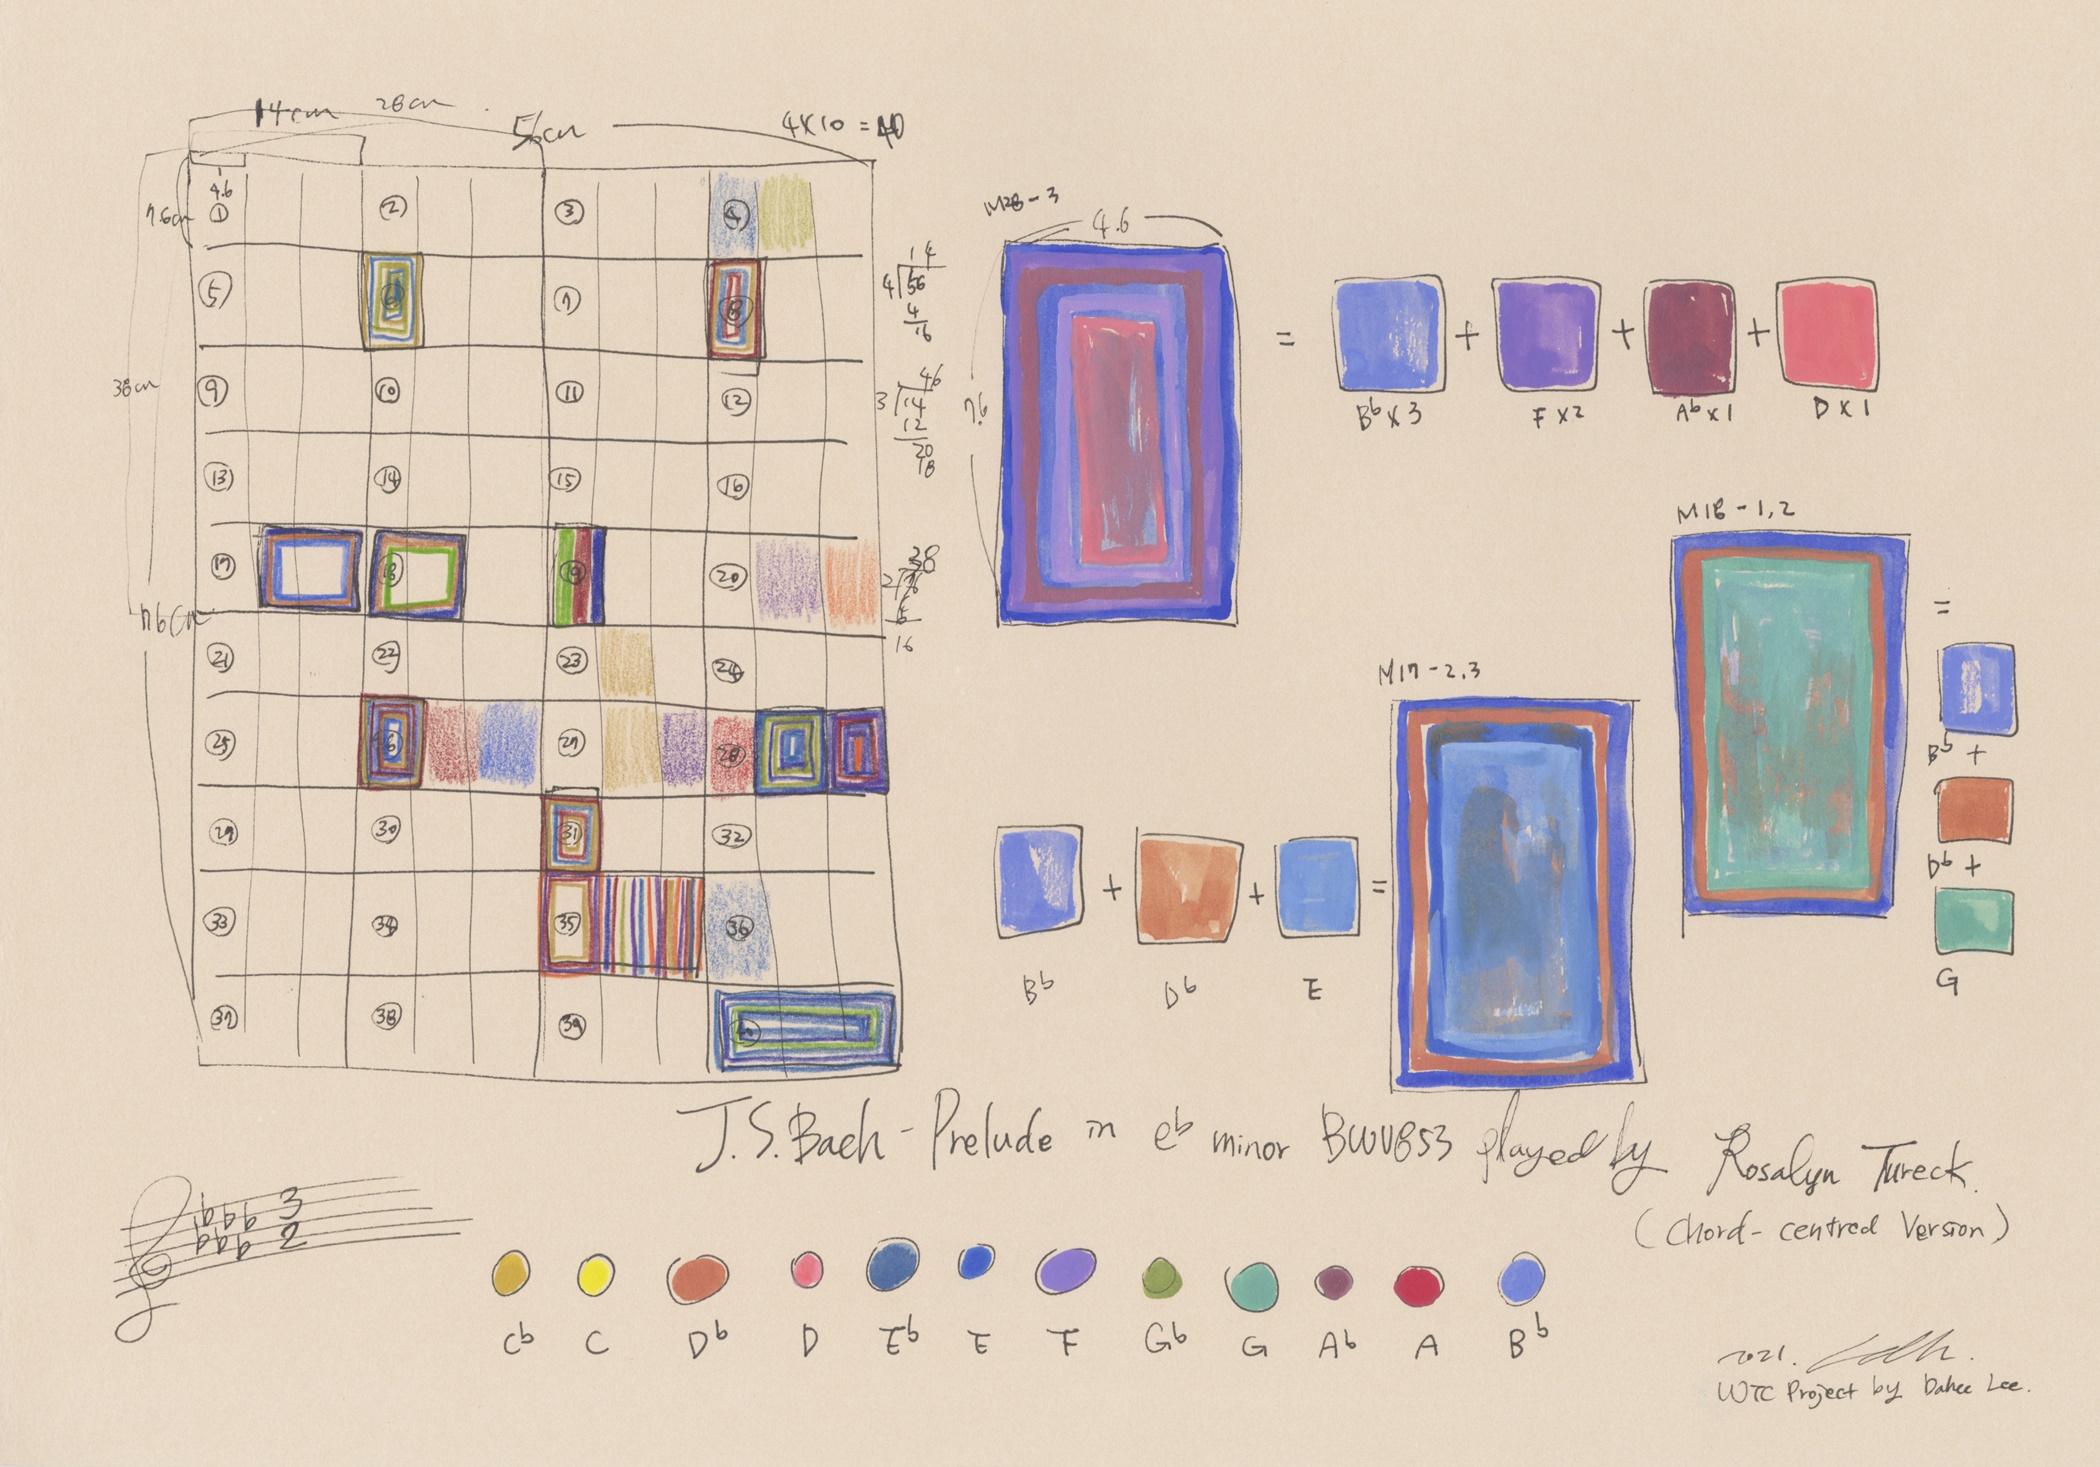 14cm 28cm
56cm
4X10 = 40
4.6
7.6cm
38cm
76cm
① ② ③ ④
⑤ ⑥ ⑦ ⑧
⑨ ⑩ ⑪ ⑫
⑬ ⑭ ⑮ ⑯
⑰ ⑱ ⑲ ⑳
㉑ ㉒ ㉓ ㉔
㉕ ㉖ ㉗ ㉘
㉙ ㉚ ㉛ ㉜
㉝ ㉞ ㉟ ㊱
㊲ ㊳ ㊴ ㊵
14
4 56
4
16
46
3 14
12
20
18
38
2 76
6
16
M28-3
4.6
7.6
= + + +
B♭x3 Fx2 A♭x1 Dx1
M18-1,2
=
B♭ +
D♭ +
G
M17-2,3
+ + =
B♭ D♭ E
J.S.Bach - Prelude in e♭ minor BWV853 played by Rosalyn Tureck.
(Chord-centred Version)
♭♭♭ 3
♭♭♭ 2
C♭ C D♭ D E♭ E F G♭ G A♭ A B♭
2021.
WTC Project by Dahee Lee.